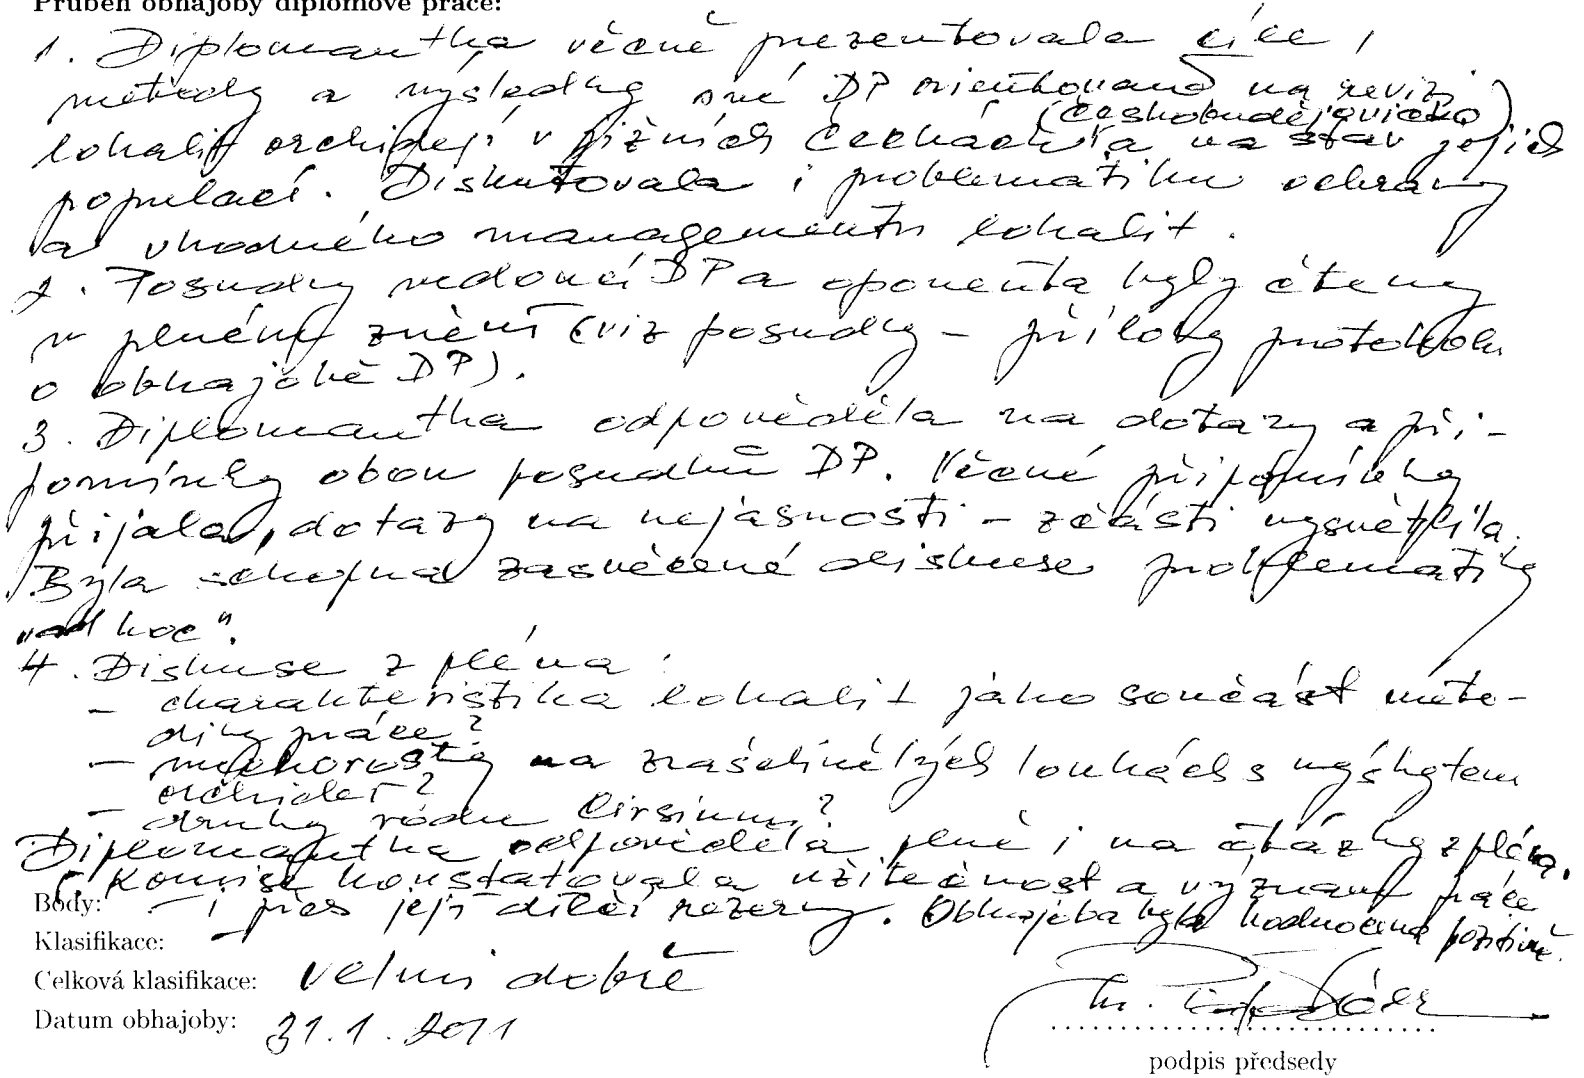 Průběh obhajoby diplomové práce:
1. Diplomantka věcně prezentovala cíle,
metody a výsledky své DP orientované na revizi
(českobudějovicko)
lokalit orchidejí v jižních Čechách a na stav jejich
populací. Diskutovala i problematiku ochrany
a vhodného managementu lokalit.
2. Posudky vedoucí DP a oponenta byly čteny
v plném znění (viz posudky – přílohy protokolu
o obhajobě DP).
3. Diplomantka odpověděla na dotazy a při-
pomínky obou posudků DP. Věcné připomínky
přijala, dotazy na nejasnosti – zčásti vysvětlila.
Byla schopna zasvěcené diskuse problematiky
„ad hoc".
4. Diskuse z pléna:
– charakteristika lokalit jako součást meto-
diky práce?
– mechorosty na zrašelinělých loukách s výskytem
orchidejí?
– druhy rodu Cirsium?
Diplomantka odpověděla plně i na otázky z pléna.
5. Komise konstatovala užitečnost a význam práce
Body: – i přes její dílčí rezervy. Obhajoba byla hodnocena pozitivně.
Klasifikace: –
Celková klasifikace: Velmi dobře
Datum obhajoby: 31.1.2011
podpis předsedy